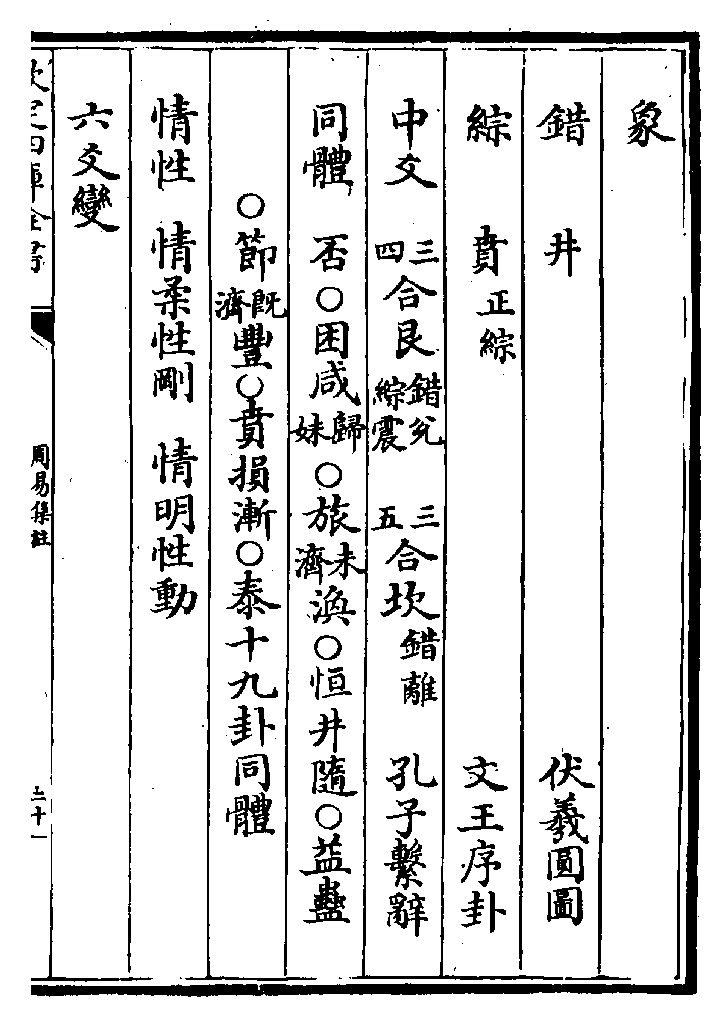 象
錯 井 伏羲圓圖
綜 賁 正綜 文王序卦
中爻 三四合艮 錯兌綜震 三五合坎 錯離 孔子繫辭
同體 否○困咸歸妹○旅未濟渙○恒井隨○益蠱
○節既濟豐○賁損漸○泰十九卦同體
情性 情柔性剛 情明性動
六爻變
欽定四庫全書
周易集註